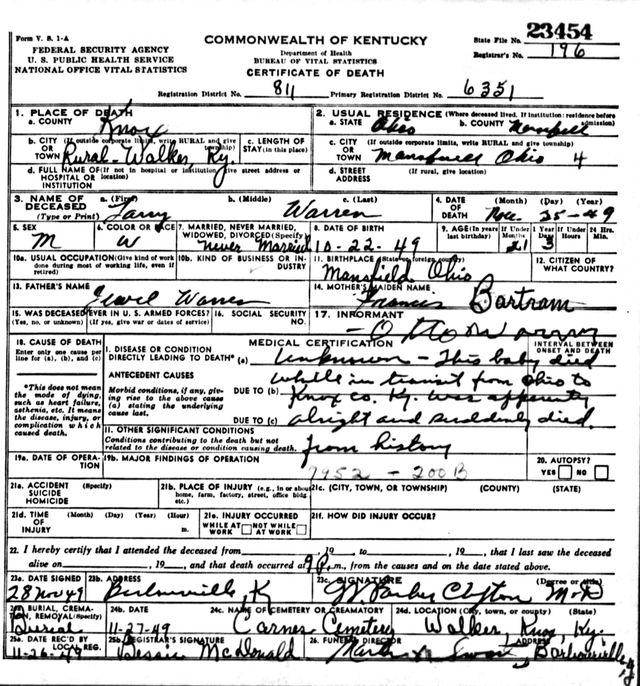 Form V. S. 1-A
FEDERAL SECURITY AGENCY
U. S. PUBLIC HEALTH SERVICE
NATIONAL OFFICE VITAL STATISTICS
COMMONWEALTH OF KENTUCKY
Department of Health
BUREAU OF VITAL STATISTICS
CERTIFICATE OF DEATH
State File No. 23454
Registrar's No. 196
Registration District No. 811 Primary Registration District No. 6351
1. PLACE OF DEATH
a. COUNTY Knox
2. USUAL RESIDENCE (Where deceased lived. If institution: residence before admission)
a. STATE Ohio b. COUNTY
b. CITY (If outside corporate limits, write RURAL and give township) OR TOWN Rural-Walker, Ky.
c. LENGTH OF STAY (in this place)
c. CITY (If outside corporate limits, write RURAL and give township) OR TOWN Mansfield Ohio 4
d. FULL NAME OF (If not in hospital or institution, give street address or location) HOSPITAL OR INSTITUTION
d. STREET ADDRESS (If rural, give location)
3. NAME OF DECEASED (Type or Print) a. (First) Larry b. (Middle) c. (Last) Warren
4. DATE OF DEATH (Month) (Day) (Year) Nov. 25-49
5. SEX M
6. COLOR OR RACE W
7. MARRIED, NEVER MARRIED, WIDOWED, DIVORCED (Specify) Never Married
8. DATE OF BIRTH 10-22-49
9. AGE (In years last birthday) If Under Months 1 If Under Days 3 If Under 24 Hrs. Hours Min.
10a. USUAL OCCUPATION (Give kind of work done during most of working life, even if retired)
10b. KIND OF BUSINESS OR INDUSTRY
11. BIRTHPLACE (State or foreign country) Mansfield Ohio
12. CITIZEN OF WHAT COUNTRY?
13. FATHER'S NAME Jewel Warren
14. MOTHER'S MAIDEN NAME Frances Bartram
15. WAS DECEASED EVER IN U. S. ARMED FORCES? (Yes, no, or unknown) (If yes, give war or dates of service)
16. SOCIAL SECURITY NO.
17. INFORMANT Otto Warren
18. CAUSE OF DEATH
Enter only one cause per line for (a), (b), and (c)
*This does not mean the mode of dying, such as heart failure, asthenia, etc. It means the disease, injury, or complication which caused death.
MEDICAL CERTIFICATION
INTERVAL BETWEEN ONSET AND DEATH
I. DISEASE OR CONDITION DIRECTLY LEADING TO DEATH* (a) Unknown - This baby died
ANTECEDENT CAUSES while in transit from Ohio to
Morbid conditions, if any, giving rise to the above cause (a) stating the underlying cause last.
DUE TO (b) Knox Co. Ky. Was apparently
DUE TO (c) alright and suddenly died.
II. OTHER SIGNIFICANT CONDITIONS
Conditions contributing to the death but not related to the disease or condition causing death.
from history
19a. DATE OF OPERATION
19b. MAJOR FINDINGS OF OPERATION
7952 - 200B
20. AUTOPSY? YES NO
21a. ACCIDENT SUICIDE HOMICIDE (Specify)
21b. PLACE OF INJURY (e.g., in or about home, farm, factory, street, office bldg., etc.)
21c. (CITY, TOWN, OR TOWNSHIP) (COUNTY) (STATE)
21d. TIME OF INJURY (Month) (Day) (Year) (Hour) m.
21e. INJURY OCCURRED WHILE AT WORK NOT WHILE AT WORK
21f. HOW DID INJURY OCCUR?
22. I hereby certify that I attended the deceased from , 19 to , 19 , that I last saw the deceased
alive on , 19 , and that death occurred at 9 P.m., from the causes and on the date stated above.
23a. DATE SIGNED 28 Nov 49
23b. ADDRESS Barbourville, Ky
23c. SIGNATURE Parker Clifton (Degree or title) M.D
24a. BURIAL, CREMATION, REMOVAL (Specify) Burial
24b. DATE 11-27-49
24c. NAME OF CEMETERY OR CREMATORY Carnes Cemetery
24d. LOCATION (City, town, or county) (State) Walker, Knox, Ky.
25a. DATE REC'D BY LOCAL REG. 11-26-49
25b. REGISTRAR'S SIGNATURE Bessie McDonald
26. FUNERAL DIRECTOR Barbourville, Ky